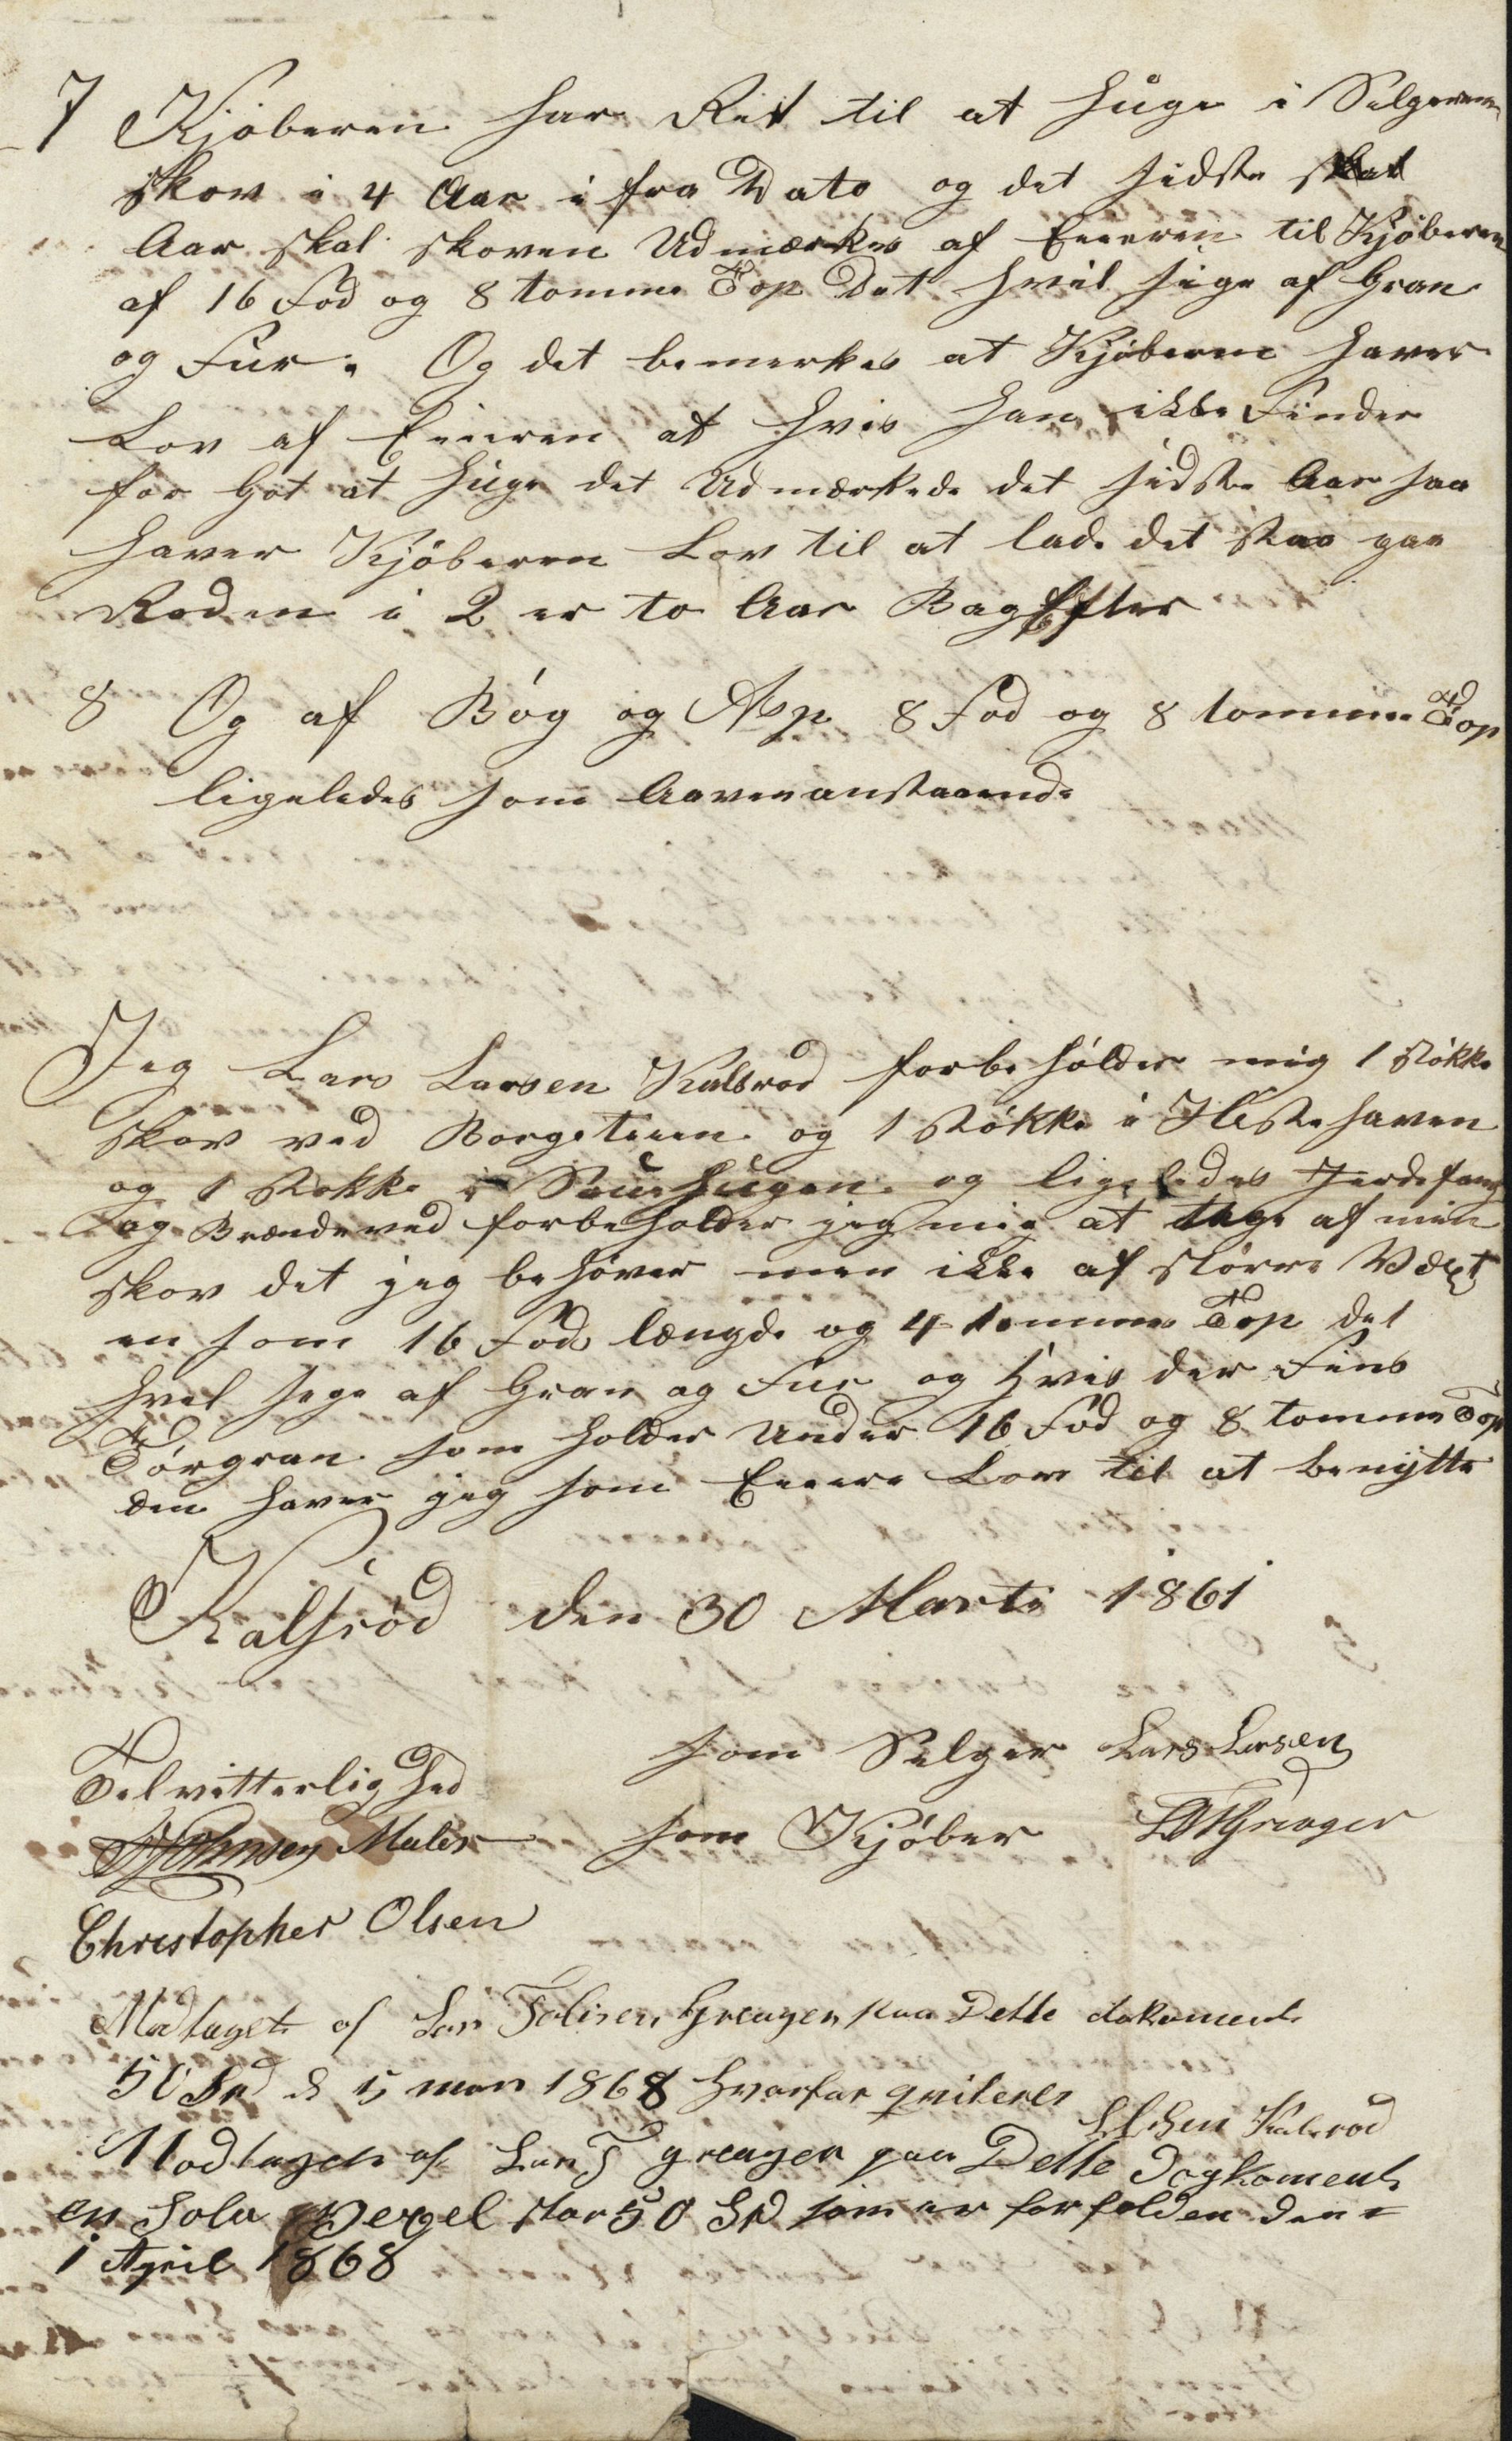 7 Kjøberen har Ret til at huge i Selgerens
skov i 4 Aar i fra Dato og det sidste skal
Aar skal skoven Udmærkes af Eieren til Kjøberen
af 16 Fod og 8 tomme Top Det hvil sige af Gran
og Fur. Og det bemerkes at Kjøberen haver
Lov af Eieren at hvis han ikke Finder
for Got at huge det Udmærkede det sidste Aar saa
haver Kjøberen Lov til at lade det staa paa
Roden i 2 er to Aar BagEfter
8 Og af Bøg og Asp 8 Fod og 8 tomme Top
ligeledes som Aavenanstaaende
Jeg Lars Larsen Kalsrød forbeholder mig 1 støkke
skov ved Borgeteien og 1 støkke i Hestehaven
og 1 støkke i Sauehugen og ligeledes Gjerdefang
og Brændeved forbeholder jeg mig at tage af min
skov det jeg behøver men ikke af større Væxt
en som 16 Fods længde og 4 tomme Top det
hvel sege af Gran og Fur og hvis der Fins
Tørgran som holder Under 16 Fod og 8 tomme Top
den haver jeg som Eiere Lov til at benytte
Kalsrød den 30 Marts 1861
som Selger Lars Larsen
Telvitterlighed
Johnsen Maler som Kjøber
Christopher Olsen
Modtaget af Lars Grenger paa Dette dokument
50 Spd d 5 mars 1868 hvorfor qviteres
Kalsrød
Modtaget af Lars T grenger paa Dette Dogkoment
en Sola Vexel stor 50 Spd som er forfalden den
1 April 1868